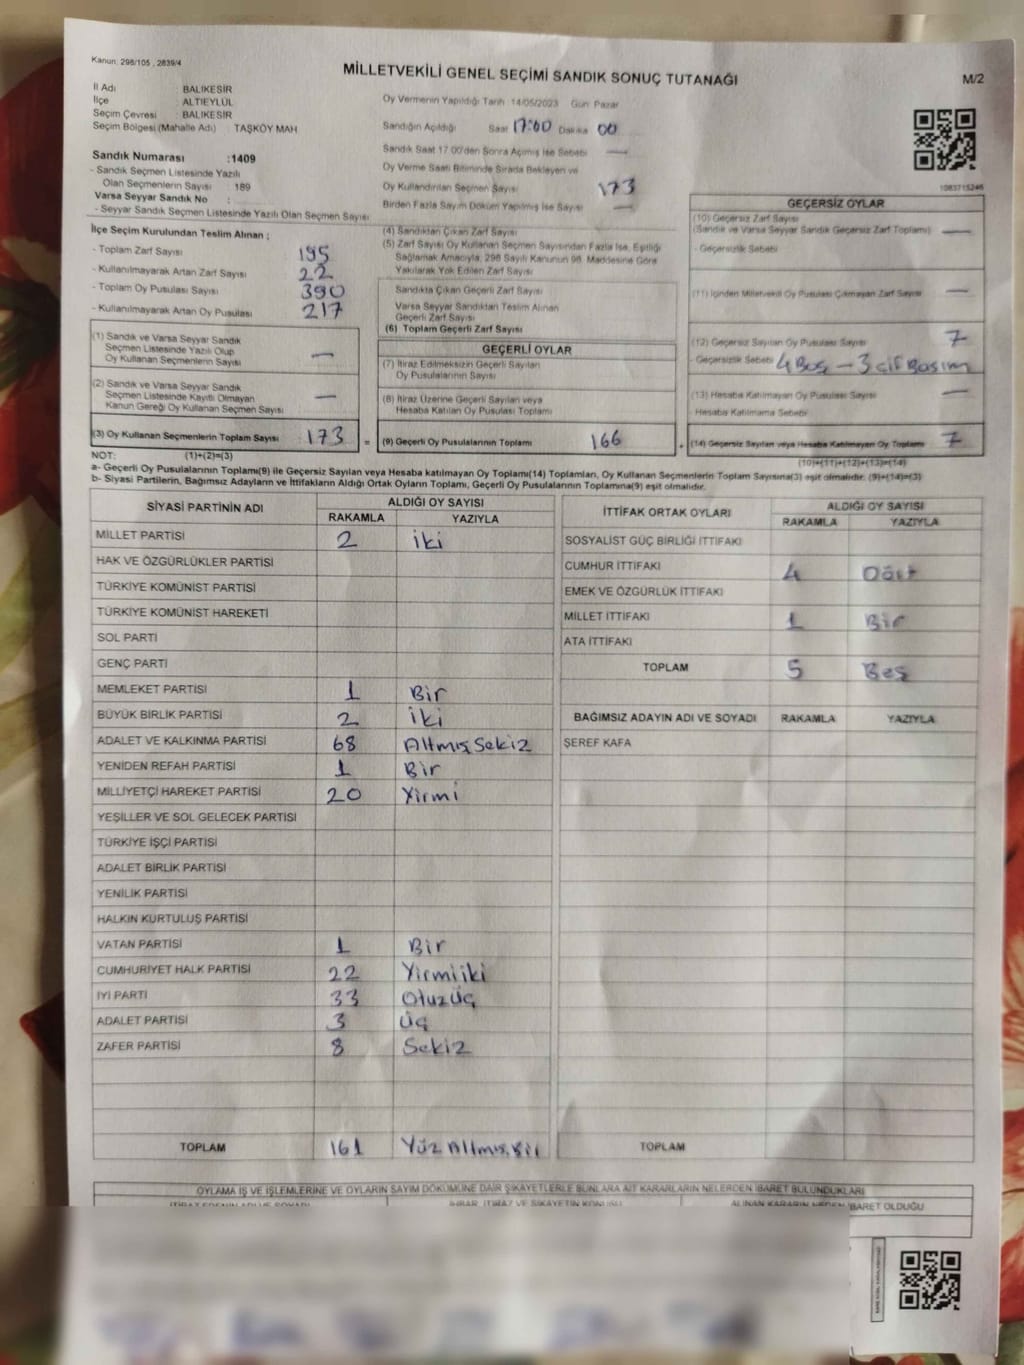 Kanun: 298/105 , 2839/4
MİLLETVEKİLİ GENEL SEÇİMİ SANDIK SONUÇ TUTANAĞI
M/2
İl Adı BALIKESİR
İlçe ALTIEYLÜL
Seçim Çevresi : BALIKESİR
Seçim Bölgesi (Mahalle Adı) TAŞKÖY MAH
Sandık Numarası :1409
- Sandık Seçmen Listesinde Yazılı
Olan Seçmenlerin Sayısı : 189
Varsa Seyyar Sandık No :
- Seyyar Sandık Seçmen Listesinde Yazılı Olan Seçmen Sayısı
Oy Vermenin Yapıldığı Tarih: 14/05/2023 Gün: Pazar
Sandığın Açıldığı Saat 17:00 Dakika 00
Sandık Saat 17.00'den Sonra Açılmış İse Sebebi —
Oy Verme Saati Bitiminde Sırada Bekleyen ve
Oy Kullandırılan Seçmen Sayısı 173
Birden Fazla Sayım Döküm Yapılmış İse Sayısı —
1083715246
İlçe Seçim Kurulundan Teslim Alınan ;
- Toplam Zarf Sayısı 195
- Kullanılmayarak Artan Zarf Sayısı 22
- Toplam Oy Pusulası Sayısı 390
- Kullanılmayarak Artan Oy Pusulası 217
(1) Sandık ve Varsa Seyyar Sandık
Seçmen Listesinde Yazılı Olup
Oy Kullanan Seçmenlerin Sayısı —
(2) Sandık ve Varsa Seyyar Sandık
Seçmen Listesinde Kayıtlı Olmayan
Kanun Gereği Oy Kullanan Seçmen Sayısı —
(3) Oy Kullanan Seçmenlerin Toplam Sayısı 173 =
(1)+(2)=(3)
(4) Sandıktan Çıkan Zarf Sayısı
(5) Zarf Sayısı Oy Kullanan Seçmen Sayısından Fazla İse, Eşitliği
Sağlamak Amacıyla, 298 Sayılı Kanunun 98. Maddesine Göre
Yakılarak Yok Edilen Zarf Sayısı
Sandıkta Çıkan Geçerli Zarf Sayısı
Varsa Seyyar Sandıktan Teslim Alınan
Geçerli Zarf Sayısı
(6) Toplam Geçerli Zarf Sayısı
GEÇERLİ OYLAR
(7) İtiraz Edilmeksizin Geçerli Sayılan
Oy Pusulalarının Sayısı
(8) İtiraz Üzerine Geçerli Sayılan veya
Hesaba Katılan Oy Pusulası Toplamı
(9) Geçerli Oy Pusulalarının Toplamı 166 +
GEÇERSİZ OYLAR
(10) Geçersiz Zarf Sayısı
(Sandık ve Varsa Seyyar Sandık Geçersiz Zarf Toplamı) —
- Geçersizlik Sebebi
(11) İçinden Milletvekili Oy Pusulası Çıkmayan Zarf Sayısı —
(12) Geçersiz Sayılan Oy Pusulası Sayısı 7
- Geçersizlik Sebebi 4 Boş - 3 Çif Basım
(13) Hesaba Katılmayan Oy Pusulası Sayısı —
Hesaba Katılmama Sebebi
(14) Geçersiz Sayılan veya Hesaba Katılmayan Oy Toplamı 7
(10)+(11)+(12)+(13)=(14)
NOT:
a- Geçerli Oy Pusulalarının Toplamı(9) ile Geçersiz Sayılan veya Hesaba katılmayan Oy Toplamı(14) Toplamları, Oy Kullanan Seçmenlerin Toplam Sayısına(3) eşit olmalıdır. (9)+(14)=(3)
b- Siyasi Partilerin, Bağımsız Adayların ve İttifakların Aldığı Ortak Oyların Toplamı, Geçerli Oy Pusulalarının Toplamına(9) eşit olmalıdır.
SİYASİ PARTİNİN ADI ALDIĞI OY SAYISI
RAKAMLA YAZIYLA
MİLLET PARTİSİ 2 iki
HAK VE ÖZGÜRLÜKLER PARTİSİ
TÜRKİYE KOMÜNİST PARTİSİ
TÜRKİYE KOMÜNİST HAREKETİ
SOL PARTİ
GENÇ PARTİ
MEMLEKET PARTİSİ 1 Bir
BÜYÜK BİRLİK PARTİSİ 2 iki
ADALET VE KALKINMA PARTİSİ 68 Altmış Sekiz
YENİDEN REFAH PARTİSİ 1 Bir
MİLLİYETÇİ HAREKET PARTİSİ 20 Yirmi
YEŞİLLER VE SOL GELECEK PARTİSİ
TÜRKİYE İŞÇİ PARTİSİ
ADALET BİRLİK PARTİSİ
YENİLİK PARTİSİ
HALKIN KURTULUŞ PARTİSİ
VATAN PARTİSİ 1 Bir
CUMHURİYET HALK PARTİSİ 22 Yirmi iki
İYİ PARTİ 33 Otuz üç
ADALET PARTİSİ 3 üç
ZAFER PARTİSİ 8 Sekiz
TOPLAM 161 Yüz Altmış Bir
İTTİFAK ORTAK OYLARI ALDIĞI OY SAYISI
RAKAMLA YAZIYLA
SOSYALİST GÜÇ BİRLİĞİ İTTİFAKI
CUMHUR İTTİFAKI 4 Dört
EMEK VE ÖZGÜRLÜK İTTİFAKI
MİLLET İTTİFAKI 1 Bir
ATA İTTİFAKI
TOPLAM 5 Beş
BAĞIMSIZ ADAYIN ADI VE SOYADI RAKAMLA YAZIYLA
ŞEREF KAFA
TOPLAM
OYLAMA İŞ VE İŞLEMLERİNE VE OYLARIN SAYIM DÖKÜMÜNE DAİR ŞİKAYETLERLE BUNLARA AİT KARARLARIN NELERDEN İBARET BULUNDUKLARI
İTİRAZ EDENİN ADI VE SOYADI İHBAR, İTİRAZ VE ŞİKAYETİN KONUSU ALINAN KARARIN NEDEN İBARET OLDUĞU